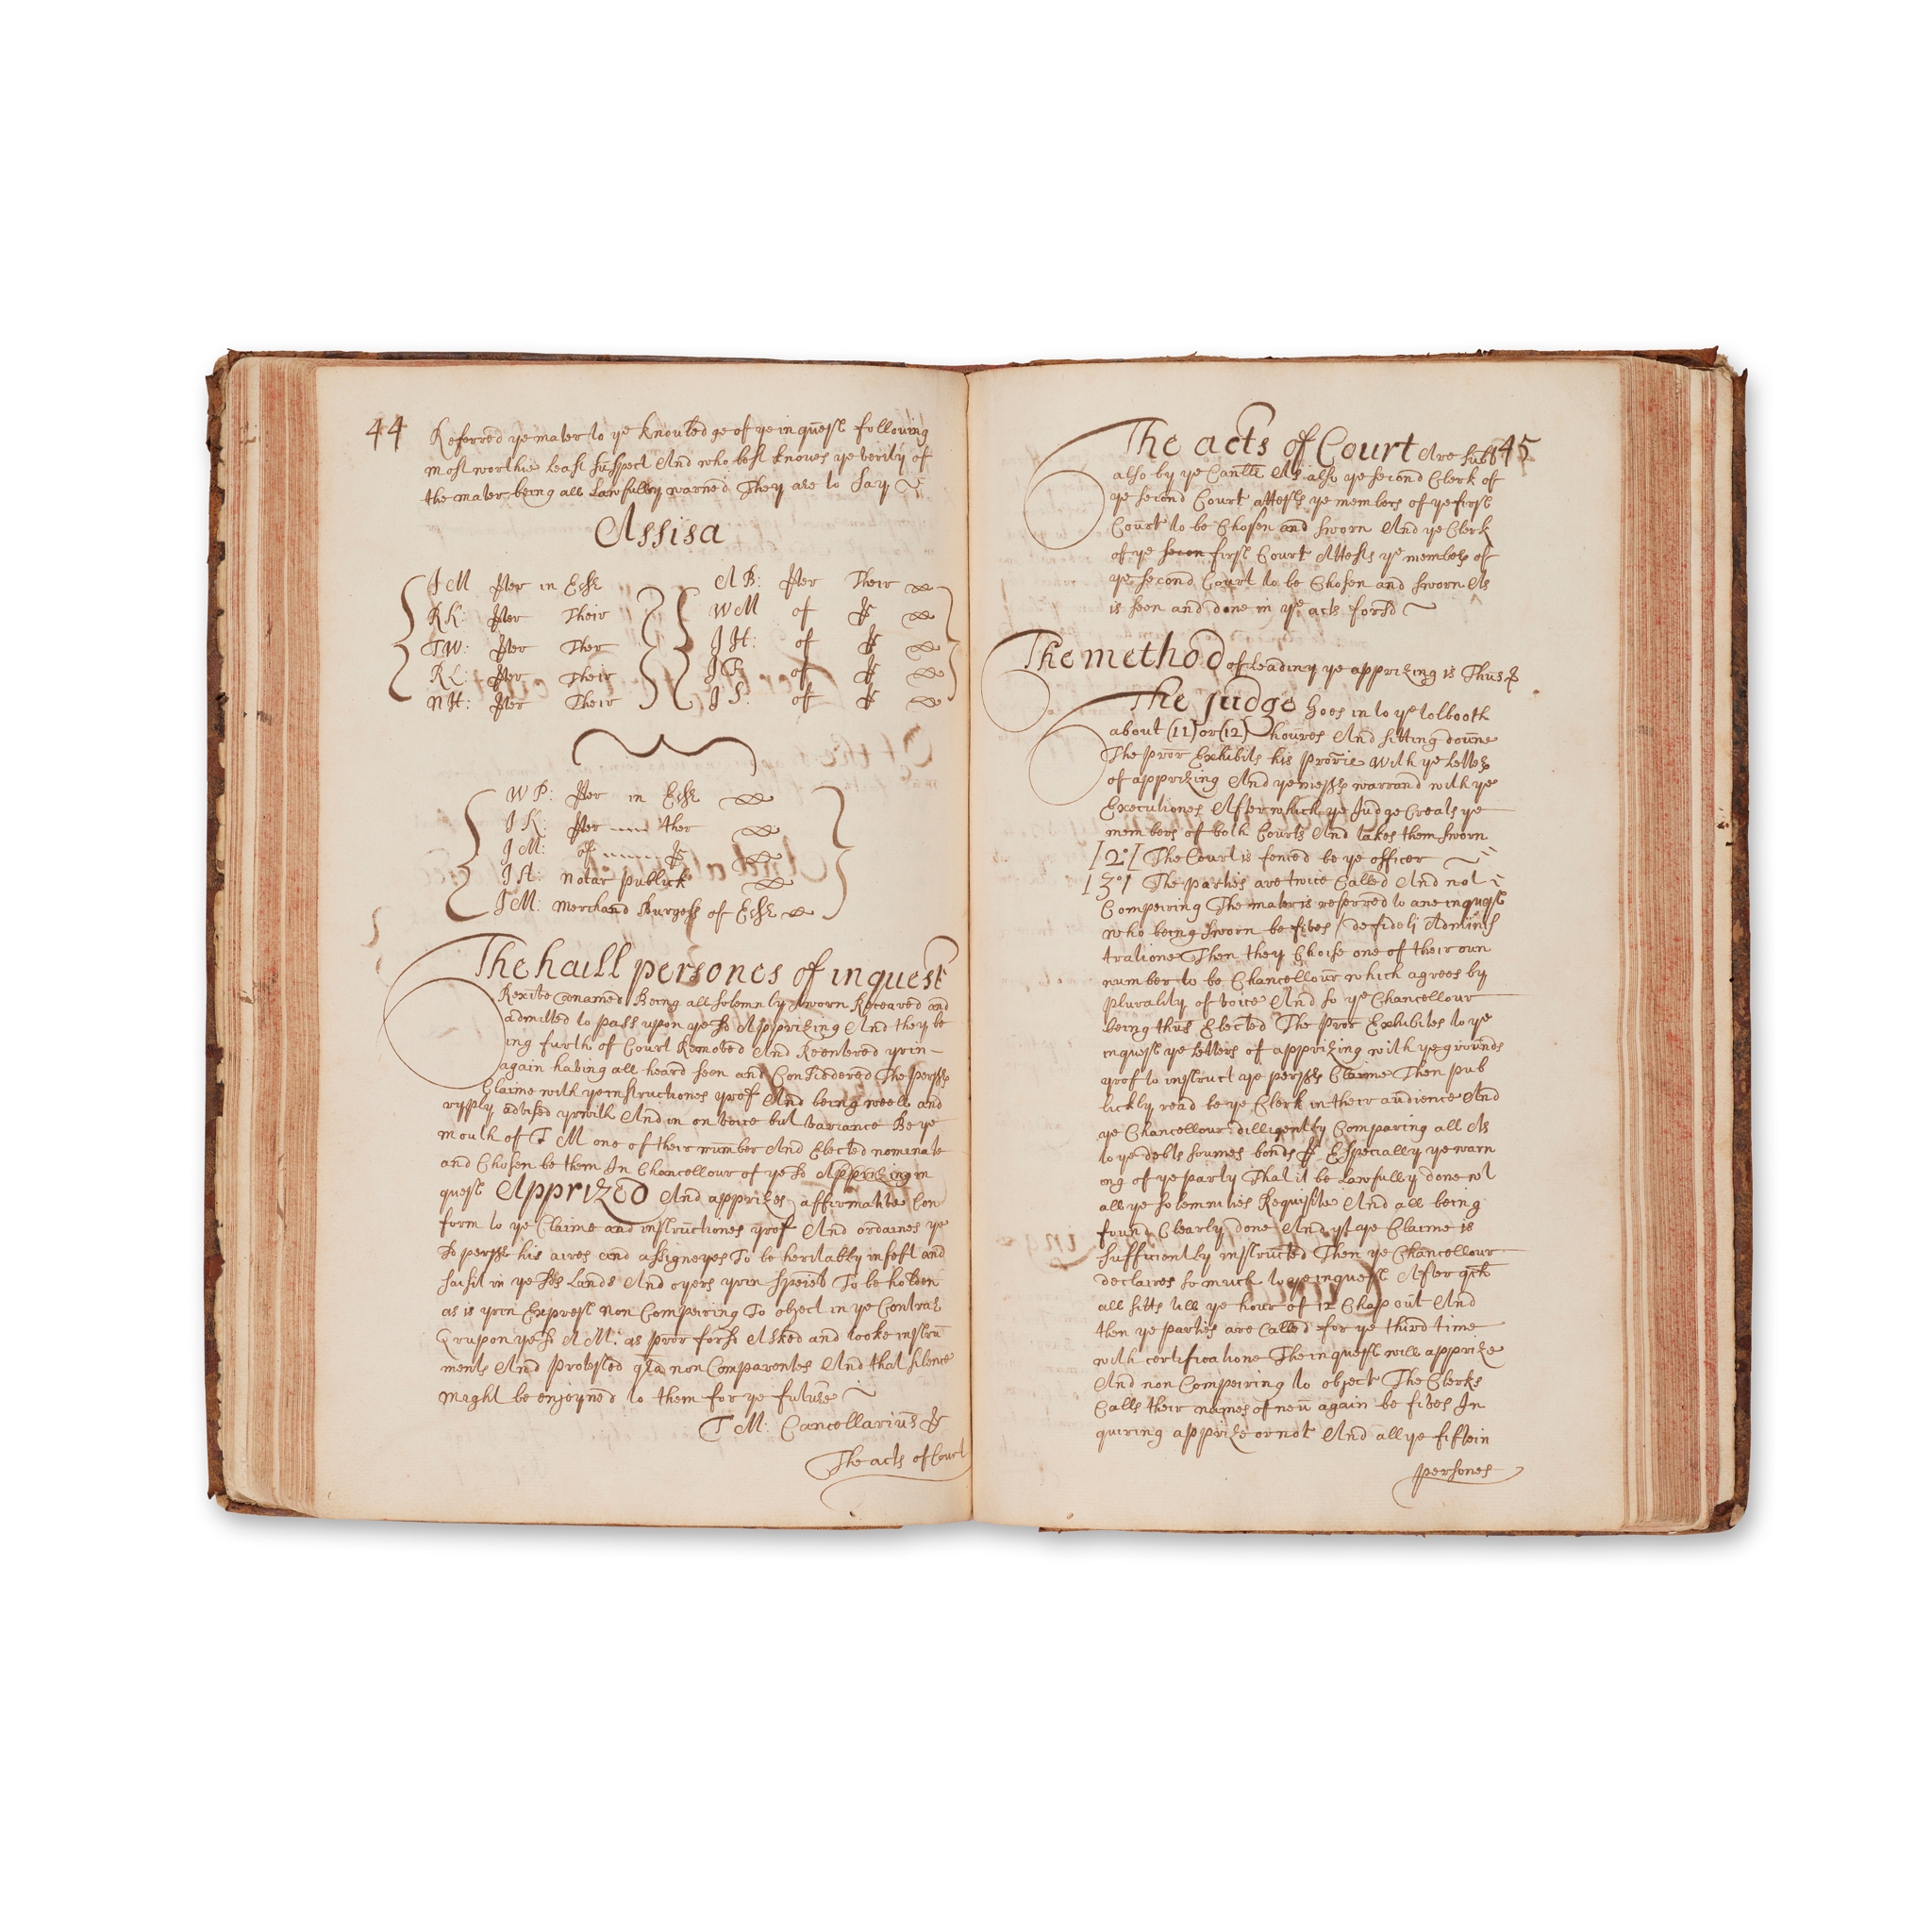 44
Referred ye mater to ye knouledge of ye inquest following
most worthie least suspect And who best knowes ye verity of
the mater being all Lawfully warned They are to say
Assisa
J M wter in Edr
RK: wter Their
TW: wter Ther
RL: wter Their
NH: wter Their
A B: wter Their
WM of
J H: of
J B of
J S: of
W P: wter in Edr
J K: wter ther
J M: of
J A: Notar publick
J M: Merchand Burgess of Edr
The haill persones of inquest
Rexive Being all solemnly sworn Receaved and
admitted to pass upon ye sd Apprizing And they be
ing furth of Court Removed And Reentered yrin
again having all heard seen and Considdered The perssrs
Claime with ye instructiones yrof And being weell and
ryply advised yrwith And in on voice but variance Be ye
mouth of T M one of their number And Elected nominate
and Chosen be them In Chancellour of ye sd Apprizing in
quest Apprized And apprizes affirmative Con
form to ye Claime and instructiones yrof And ordaines ye
sd perssr his aires and assigneyes To be heritably infeft and
saisit in ye sds Lands And oyers yrin Speirit To be holden
as is yrin Exprest non Compeiring To object in ye Contrar
Qrupon ye sd A M: as pror forsd Asked and tooke instru
ments And protested qra non Comparentes And that silence
might be enjoyned to them for ye future
T M: Cancellarius
The acts of Court
45
The acts of Court Are subt
also by ye Canclr As also ye second Clerk of
ye second Court attests ye members of ye first
Court to be Chosen and sworn And ye Clerk
of ye secon first Court Attests ye members of
ye second Court to be Chosen and sworn As
is seen and done in ye acts forsd
The method of leading ye apprizing is Thus
The Judge Goes in to ye tolbooth
about (11) or (12) houres And sitting doune
The pror Exhibits his prorie with ye Letters
of apprizing And ye messrs warrand with ye
Executiones After which ye Judge Creats ye
members of both Courts And takes them sworn
[2o] The Court is fenced be ye officer
[3o] The parties are twice Called And not
Compeiring The mater is referred to ane inquest
who being sworn be fives (de fideli Adminis
tratione Then they Choise one of their oun
number to be Chancellour which agrees by
plurality of voice And so ye Chancellour
being thus Elected The pror Exhibites to ye
inquest ye Letters of apprizing with ye grounds
yrof to instruct ye perssrs Claime Then pub
lickly read be ye Clerk in their audience And
ye Chancellour dilligently Comparing all As
to ye debts soumes bonds Especially ye warn
ing of ye party That it be Lawfully done wt
all ye solemnities Requisite And all being
found Clearly done And yt ye Claime is
sufficiently instructed Then ye Chancellour
declaires so much to ye inquest After qch
all sitts till ye hour of 12 Chap out And
then ye parties are Called for ye third time
with certificatione The inquest will apprize
And non Compeiring to object The Clerks
Calls their names of neu again be fives In
quiring apprize or not And all ye fiftein
persones